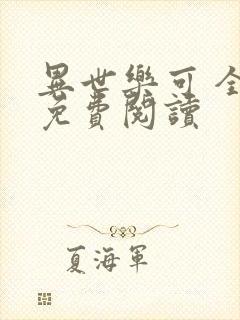 異世樂可 全
免費閱讀
夏海軍